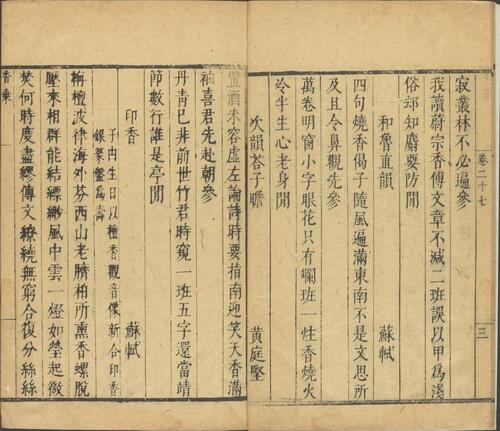 卷二十七
三
寂叢林不必遍參
我讀蔚宗香傳文章不減二班誤以甲爲淺
俗却知麝要防閒
和魯直韻 蘇軾
四句燒香偈子隨風遍滿東南不是文思所
及且令鼻觀先參
萬卷明窗小字眼花只有斕班一炷香燒火
冷半生心老身閒
次韻荅子瞻 黄庭堅
置酒未容虛左論詩時要指南迎笑天香滿
袖喜君先赴朝參
丹青已非前世竹君時窺一班五字還當靖
節數行誰是亭閒
印香 蘇軾
子由生日以檀香觀音像新合印香
銀篆盤爲壽
栴檀波律海外芬西山老臍柏所熏香螺脫
黶來相群能結縹緲風中雲一燈如螢起微
焚何時度盡繆傳文繚繞無窮合復分絲絲
香乘